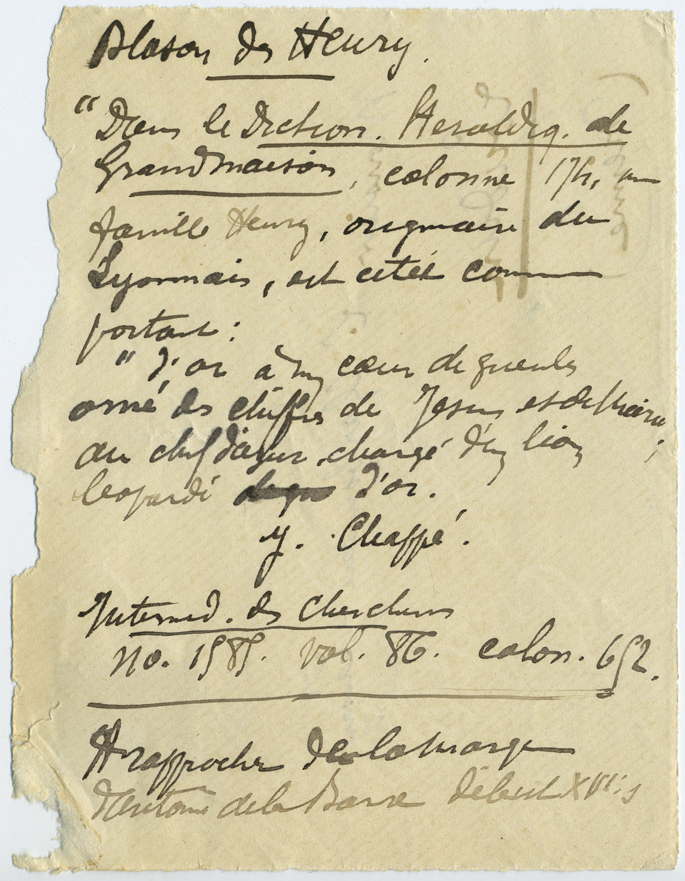 Blason des Henry.
"Dans le Diction. Heraldiq. de
Grandmaison, colonne 174, un
famille Henry, originaire du
Lyonnais, est citée comme
portant :
" D'or à un cœur de gueules
orné des chiffres de Jesus et de Marie,
au chef d'azur, chargé d'un lion
leopardé d'or.
Y. Chappé.
Intermed. des Chercheurs
no. 1585. vol. 86. colon. 652.
A rapprocher de la marque
d'Antoine de la Barre début XVIIs